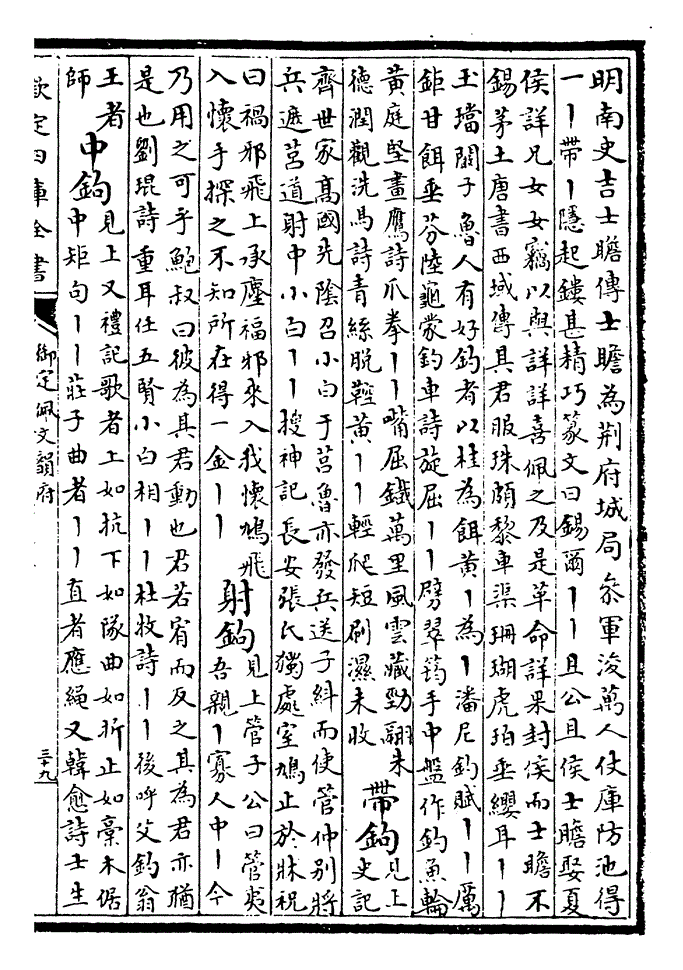 明南史吉士瞻傳士瞻為荆府城局叅軍浚萬人仗庫防池得
一丨帶丨隱起鏤甚精巧篆文曰錫爾丨丨且公且侯士瞻娶夏
侯詳兄女女竊以與詳詳喜佩之及是革命詳果封侯而士瞻不
錫茅土唐書西域傳其君服珠頗黎車渠珊瑚虎珀垂纓耳丨丨
玉璫闕子魯人有好釣者以桂為餌黃丨為丨潘尼釣賦丨丨厲
鉅甘餌垂芬陸龜蒙釣車詩旋屈丨丨劈翠筠手中盤作釣魚輪
黃庭堅畫鷹詩爪拳丨丨嘴屈鐵萬里風雲藏勁翮朱
德潤觀洗馬詩青絲脱鞚黃丨丨輕爬短刷濕未收
帶鉤見上史記
齊世家高國先陰召小白于莒魯亦發兵送子糾而使管仲别將
兵遮莒道射中小白丨丨搜神記長安張氏獨處室鳩止於牀祝
曰禍邪飛上承塵福邪來入我懷鳩飛
入懷手探之不知所在得一金丨丨
射鉤見上管子公曰管夷
吾親丨寡人中丨今
乃用之可乎鮑叔曰彼為其君動也君若宥而反之其為君亦猶
是也劉琨詩重耳任五賢小白相丨丨杜牧詩丨丨後呼父釣翁
王者
師
中鉤見上又禮記歌者上如抗下如隊曲如折止如槀木倨
中矩句丨丨莊子曲者丨丨直者應繩又韓愈詩士生
欽定四庫全書
御定佩文韻府
三十九